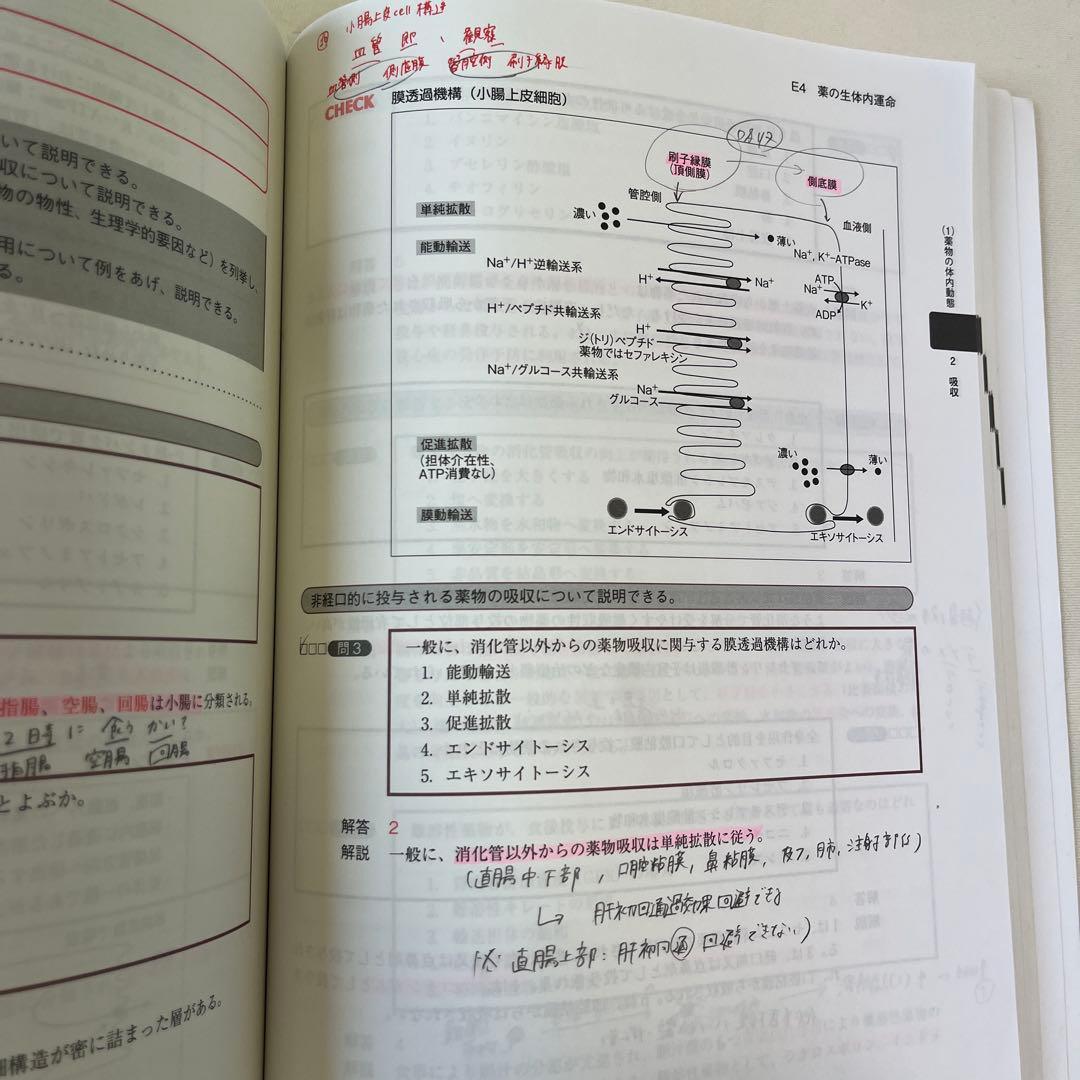 いて説明できる。
収について説明できる。
物の物性、生理学的要因など）を列挙し、
用について例をあげ、説明できる。
る。
指腸、空腸、回腸は小腸に分類される。
2日時に 食う かい？
空腸 回腸
とよぶか。
細構造が密に詰まった層がある。
小腸上皮cell構造
血管側 側底膜 管腔側 刷子縁膜
E4 薬の生体内運命
CHECK 膜透過機構（小腸上皮細胞）
刷子縁膜
（頂側膜）
側底膜
管腔側
血液側
単純拡散
濃い
薄い
能動輸送
Na⁺, K⁺-ATPase
Na⁺/H⁺逆輸送系
H⁺
Na⁺
ATP
Na⁺
K⁺
ADP
H⁺/ペプチド共輸送系
H⁺
ジ（トリ）ペプチド
薬物ではセファレキシン
Na⁺/グルコース共輸送系
Na⁺
グルコース
促進拡散
（担体介在性、
ATP消費なし）
濃い
薄い
膜動輸送
エンドサイトーシス
エキソサイトーシス
(1) 薬物の体内動態
2 吸収
非経口的に投与される薬物の吸収について説明できる。
問3 一般に、消化管以外からの薬物吸収に関与する膜透過機構はどれか。
1. 能動輸送
2. 単純拡散
3. 促進拡散
4. エンドサイトーシス
5. エキソサイトーシス
解答 2
解説 一般に、消化管以外からの薬物吸収は単純拡散に従う。
（直腸中・下部，口腔粘膜，鼻粘膜，皮フ，肺，注射部位）
↳ 肝初回通過効果回避できる
直腸上部：肝初回通 回避できない）